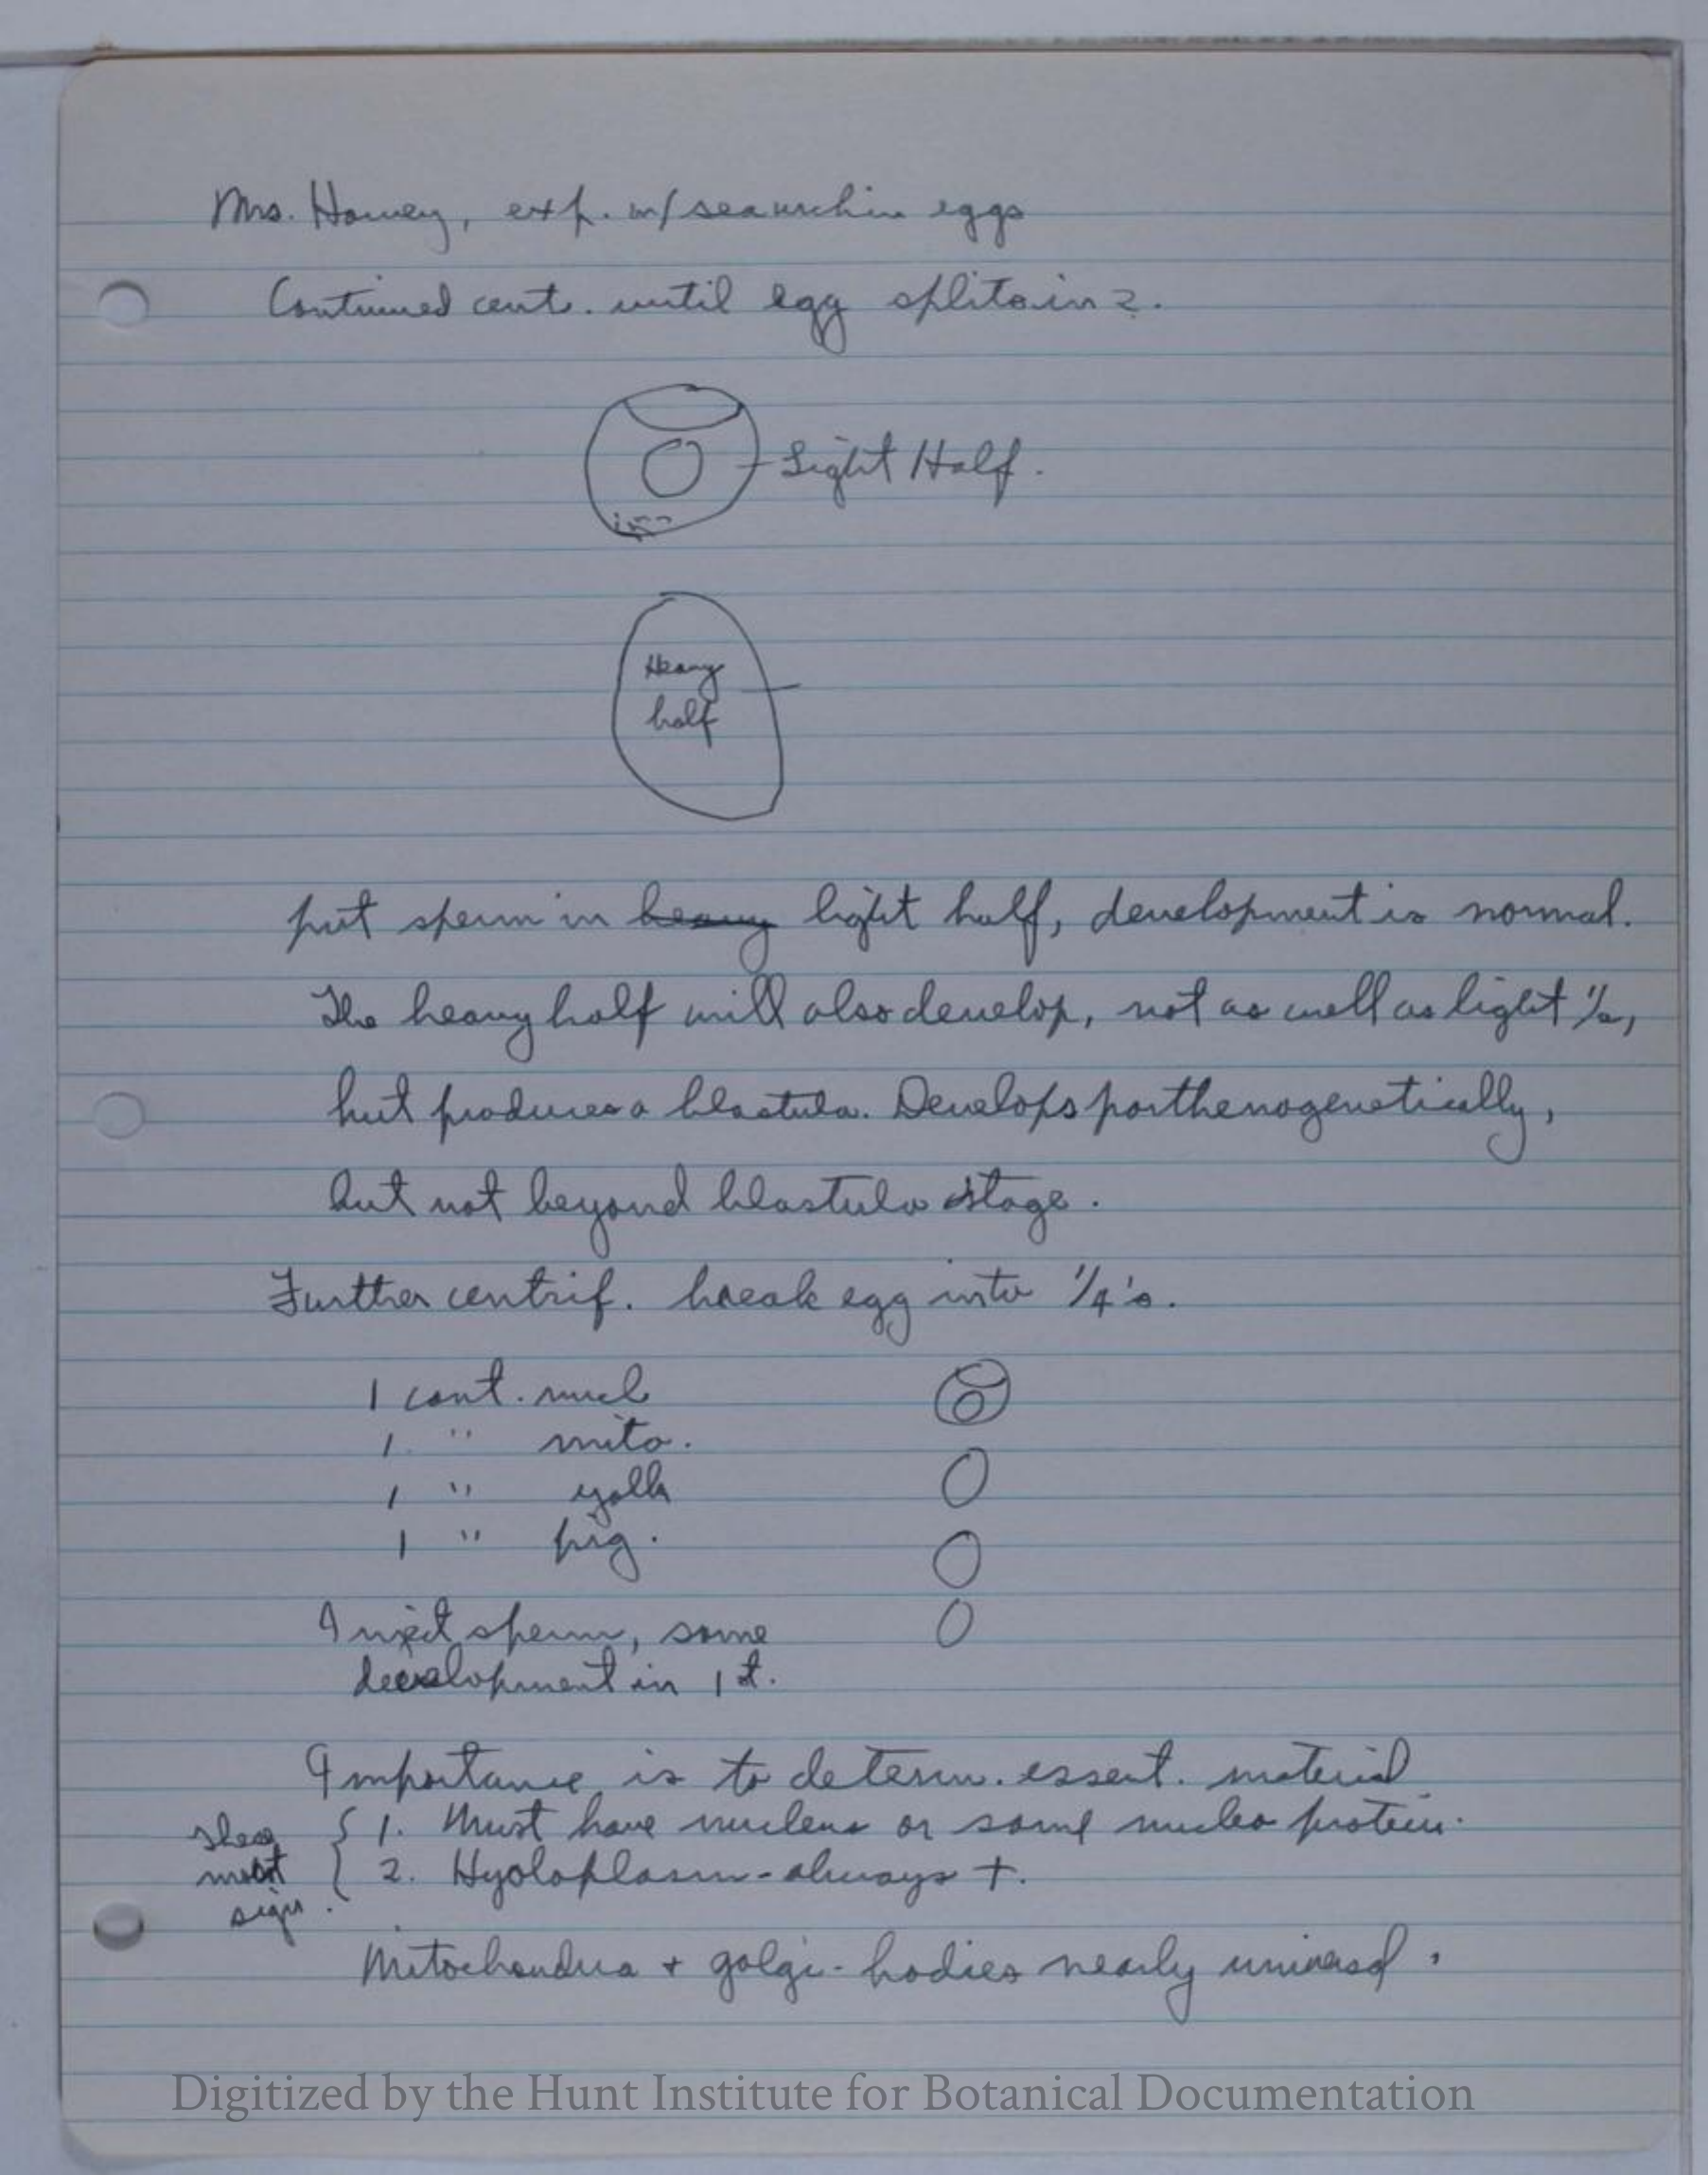 Mrs. Harvey, exp. w/ sea urchin eggs
Continued cent. until egg splits in 2.
Light Half.
Heavy
half
put sperm in heavy light half, development is normal.
The heavy half will also develop, not as well as light 1/2,
but produces a blastula. Develops parthenogenetically,
but not beyond blastula stage.
Further centrif. break egg into 1/4's.
1 cont. nucl
1 " mito.
1 " yolk
1 " pig.
Inject sperm, some
development in 1st.
Importance is to determ. essent. material
these
most
sign.
1. Must have nucleus or some nucleo protein.
2. Hyaloplasm - always +.
Mitochondria + golgi-bodies nearly universal.
Digitized by the Hunt Institute for Botanical Documentation